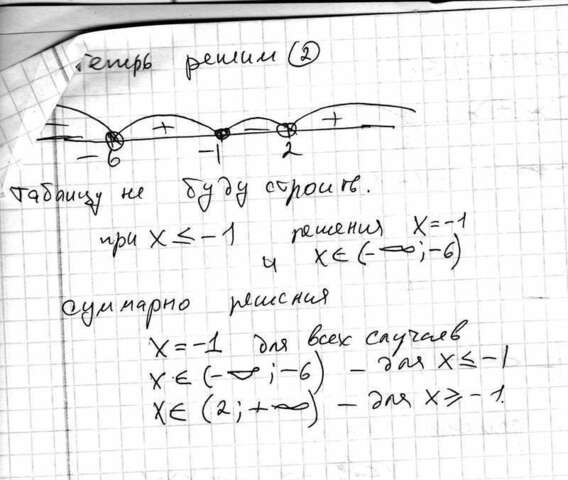 Теперь решим (2)
− + − +
−6 −1 2
Таблицу не буду строить.
при x ≤ −1 решения x=−1
и x ∈ (−∞; −6)
суммарно решения
x=−1 для всех случаев
x ∈ (−∞; −6) – для x ≤ −1
x ∈ (2; +∞) – для x ≥ −1